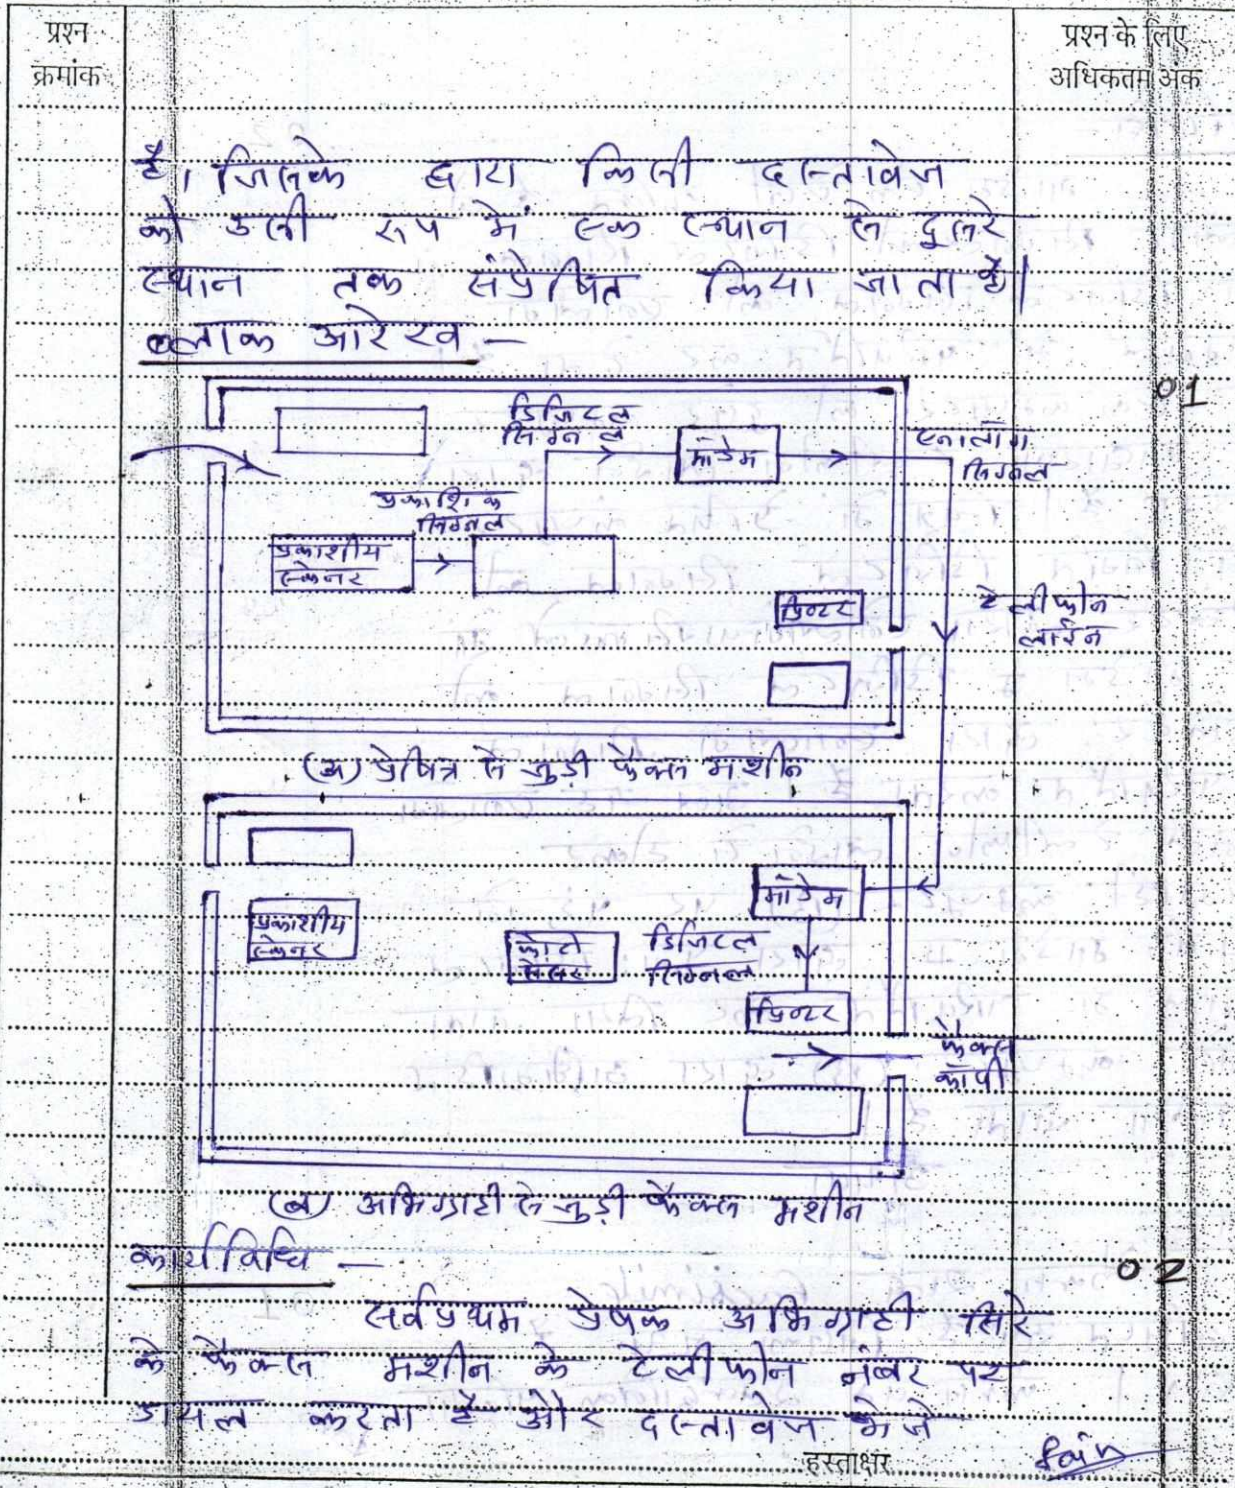 प्रश्न क्रमांक
प्रश्न के लिए अधिकतम अंक
है, जिसके द्वारा किसी दस्तावेज
को उसी रूप में एक स्थान से दूसरे
स्थान तक संप्रेषित किया जाता है।
ब्लाक आरेख —
01
डिजिटल
सिग्नल
मॉडेम
एनालॉग
सिग्नल
प्रकाशिक
सिग्नल
प्रकाशीय
स्केनर
प्रिन्टर
टेलीफोन
लाईन
(अ) प्रेषित्र से जुड़ी फैक्स मशीन
मॉडेम
प्रकाशीय
स्केनर
फोटो
सेंसर
डिजिटल
सिग्नल
प्रिन्टर
फैक्स
कॉपी
(ब) अभिग्राही से जुड़ी फैक्स मशीन
कार्यविधि —
02
सर्वप्रथम प्रेषक अभिग्राही सिरे
के फैक्स मशीन के टेलीफोन नंबर पर
डायल करता है और दस्तावेज भेजे
हस्ताक्षर